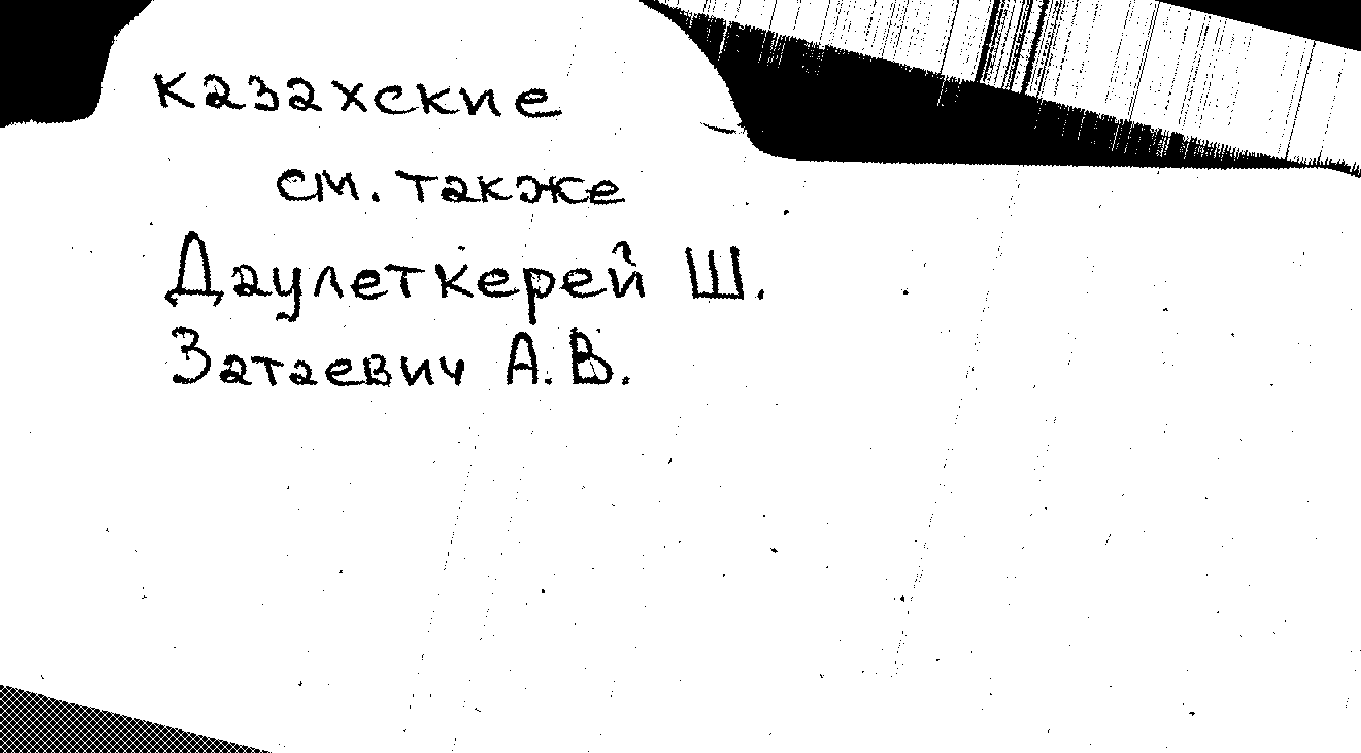 казахские
см. также
Даулеткерей Ш.
Затаевич А.В.